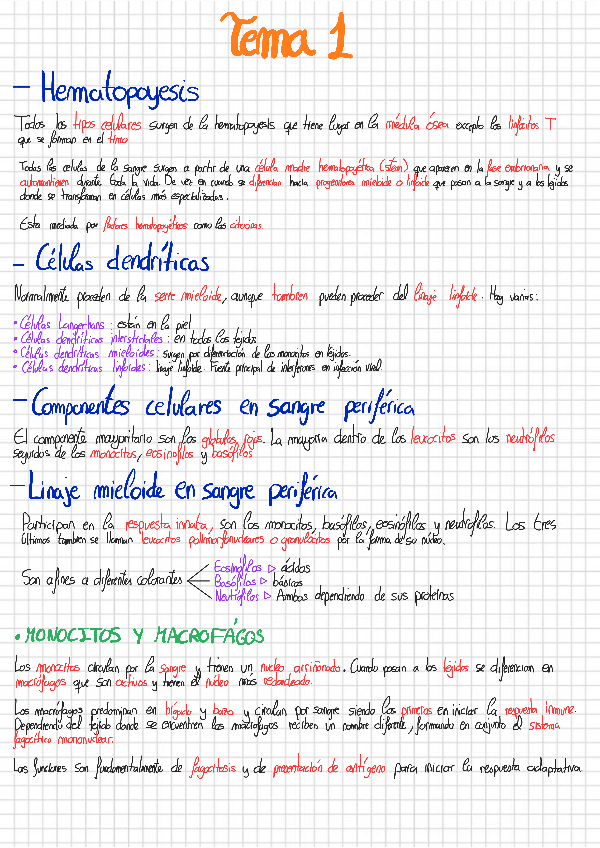 Tema 1
- Hematopoyesis
Todos los tipos celulares surgen de la hematopoyesis que tiene lugar en la médula ósea excepto los linfocitos T
que se forman en el timo
Todas las celulas de la sangre surgen a partir de una célula madre hematopoyética (stem) que aparecen en la fase embrionaria y se
automantienen durante toda la vida. De vez en cuando se diferencian hacia progenitores mieloide o linfoide que pasan a la sangre y a los tejidos
donde se transforman en células más especializadas.
Esta mediada por factores hematopoyéticos como las citocinas.
- Células dendríticas
Normalmente proceden de la serie mieloide, aunque tambien pueden proceder del linaje linfoide. Hay varias:
• Células Langerhans: están en la piel
• Células dendríticas intersticiales: en todos los tejidos
• Células dendríticas mieloides: surgen por diferenciación de los monocitos en tejidos.
• Células dendríticas linfoides: linaje linfoide. Fuente principal de interferones en infección viral.
- Componentes celulares en sangre periférica
El componente mayoritario son los glóbulos rojos. La mayoría dentro de los leucocitos son los neutrófilos
seguidos de los monocitos, eosinofilos y basófilos
- Linaje mieloide en sangre periférica
Participan en la respuesta innata, son los monocitos, basófilos, eosinófilos y neutrófilos. Los tres
últimos tambien se llaman leucocitos polimorfonucleares o granulocitos por la forma de su núcleo.
Son afines a diferentes colorantes
Eosinófilos ▷ ácidos
Basófilos ▷ básicos
Neutrófilos ▷ Ambos dependiendo de sus proteínas
• MONOCITOS Y MACROFÁGOS
Los monocitos circulan por la sangre y tienen un nucleo arriñonado. Cuando pasan a los tejidos se diferencian en
macrófagos que son activos y tienen el núcleo mas redondeado.
Los macrófagos predominan en hígado y bazo y circulan por sangre siendo los primeros en iniciar la respuesta inmune.
Dependiendo del tejido donde se encuentren los macrófagos reciben un nombre diferente, formando en conjunto el sistema
fagocítico mononuclear.
Las funciones son fundamentalmente de fagocitosis y de presentación de antígeno para iniciar la respuesta adaptativa